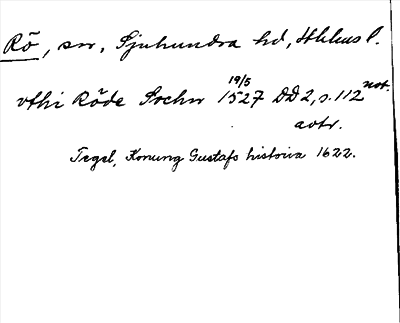 Rö, sn, Sjuhundra hd, Sthlms l.
vthi Röde Sochn 19/5 1527 DD 2, s. 112 not.
avtr.
Tegel, Konung Gustafs historia 1622.